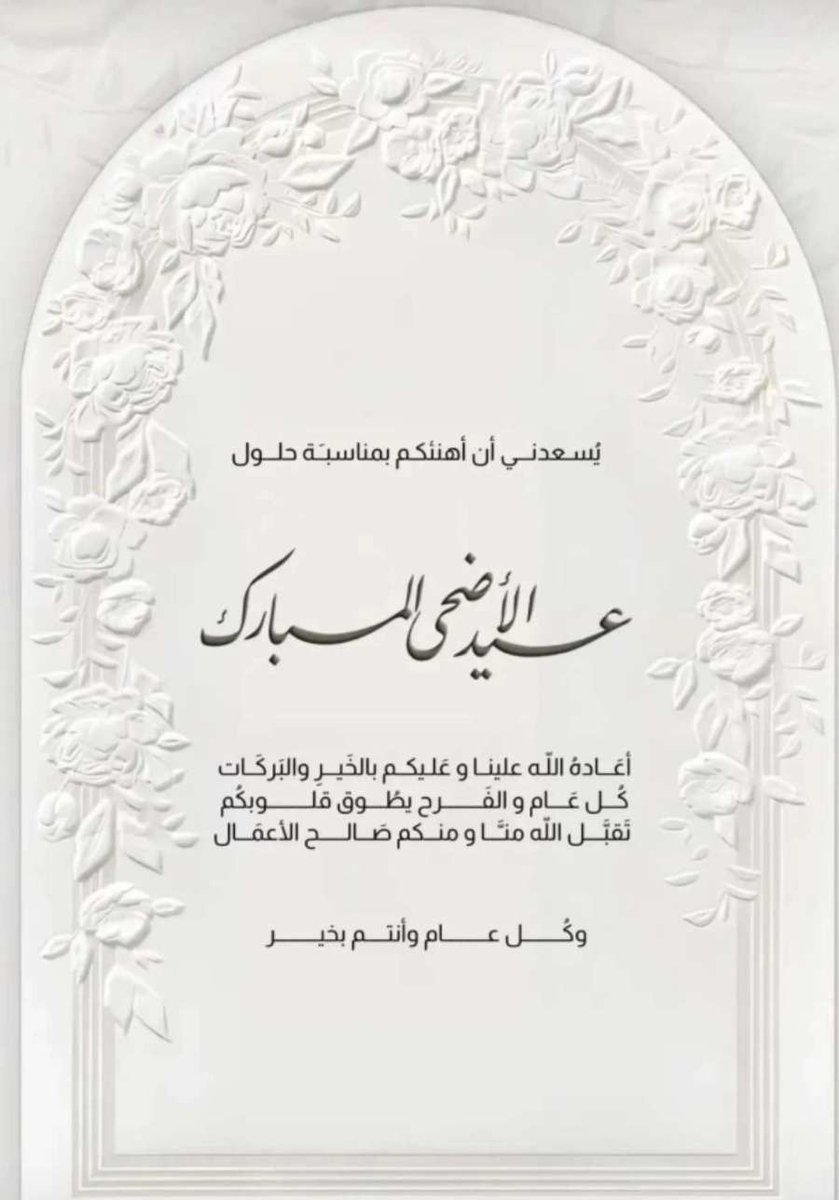 يُسعدني أن أهنئكم بمناسبَة حلول
عيد الأضحى المبارك
أعَادهُ اللّه علينا و عَليكم بالخَيرِ والبَركَات
كُل عَام و الفَرح يطُوق قلوبكُم
تَقبَّل اللّه منَّا و منكم صَالح الأعمَال
وكُل عام وأنتم بخير